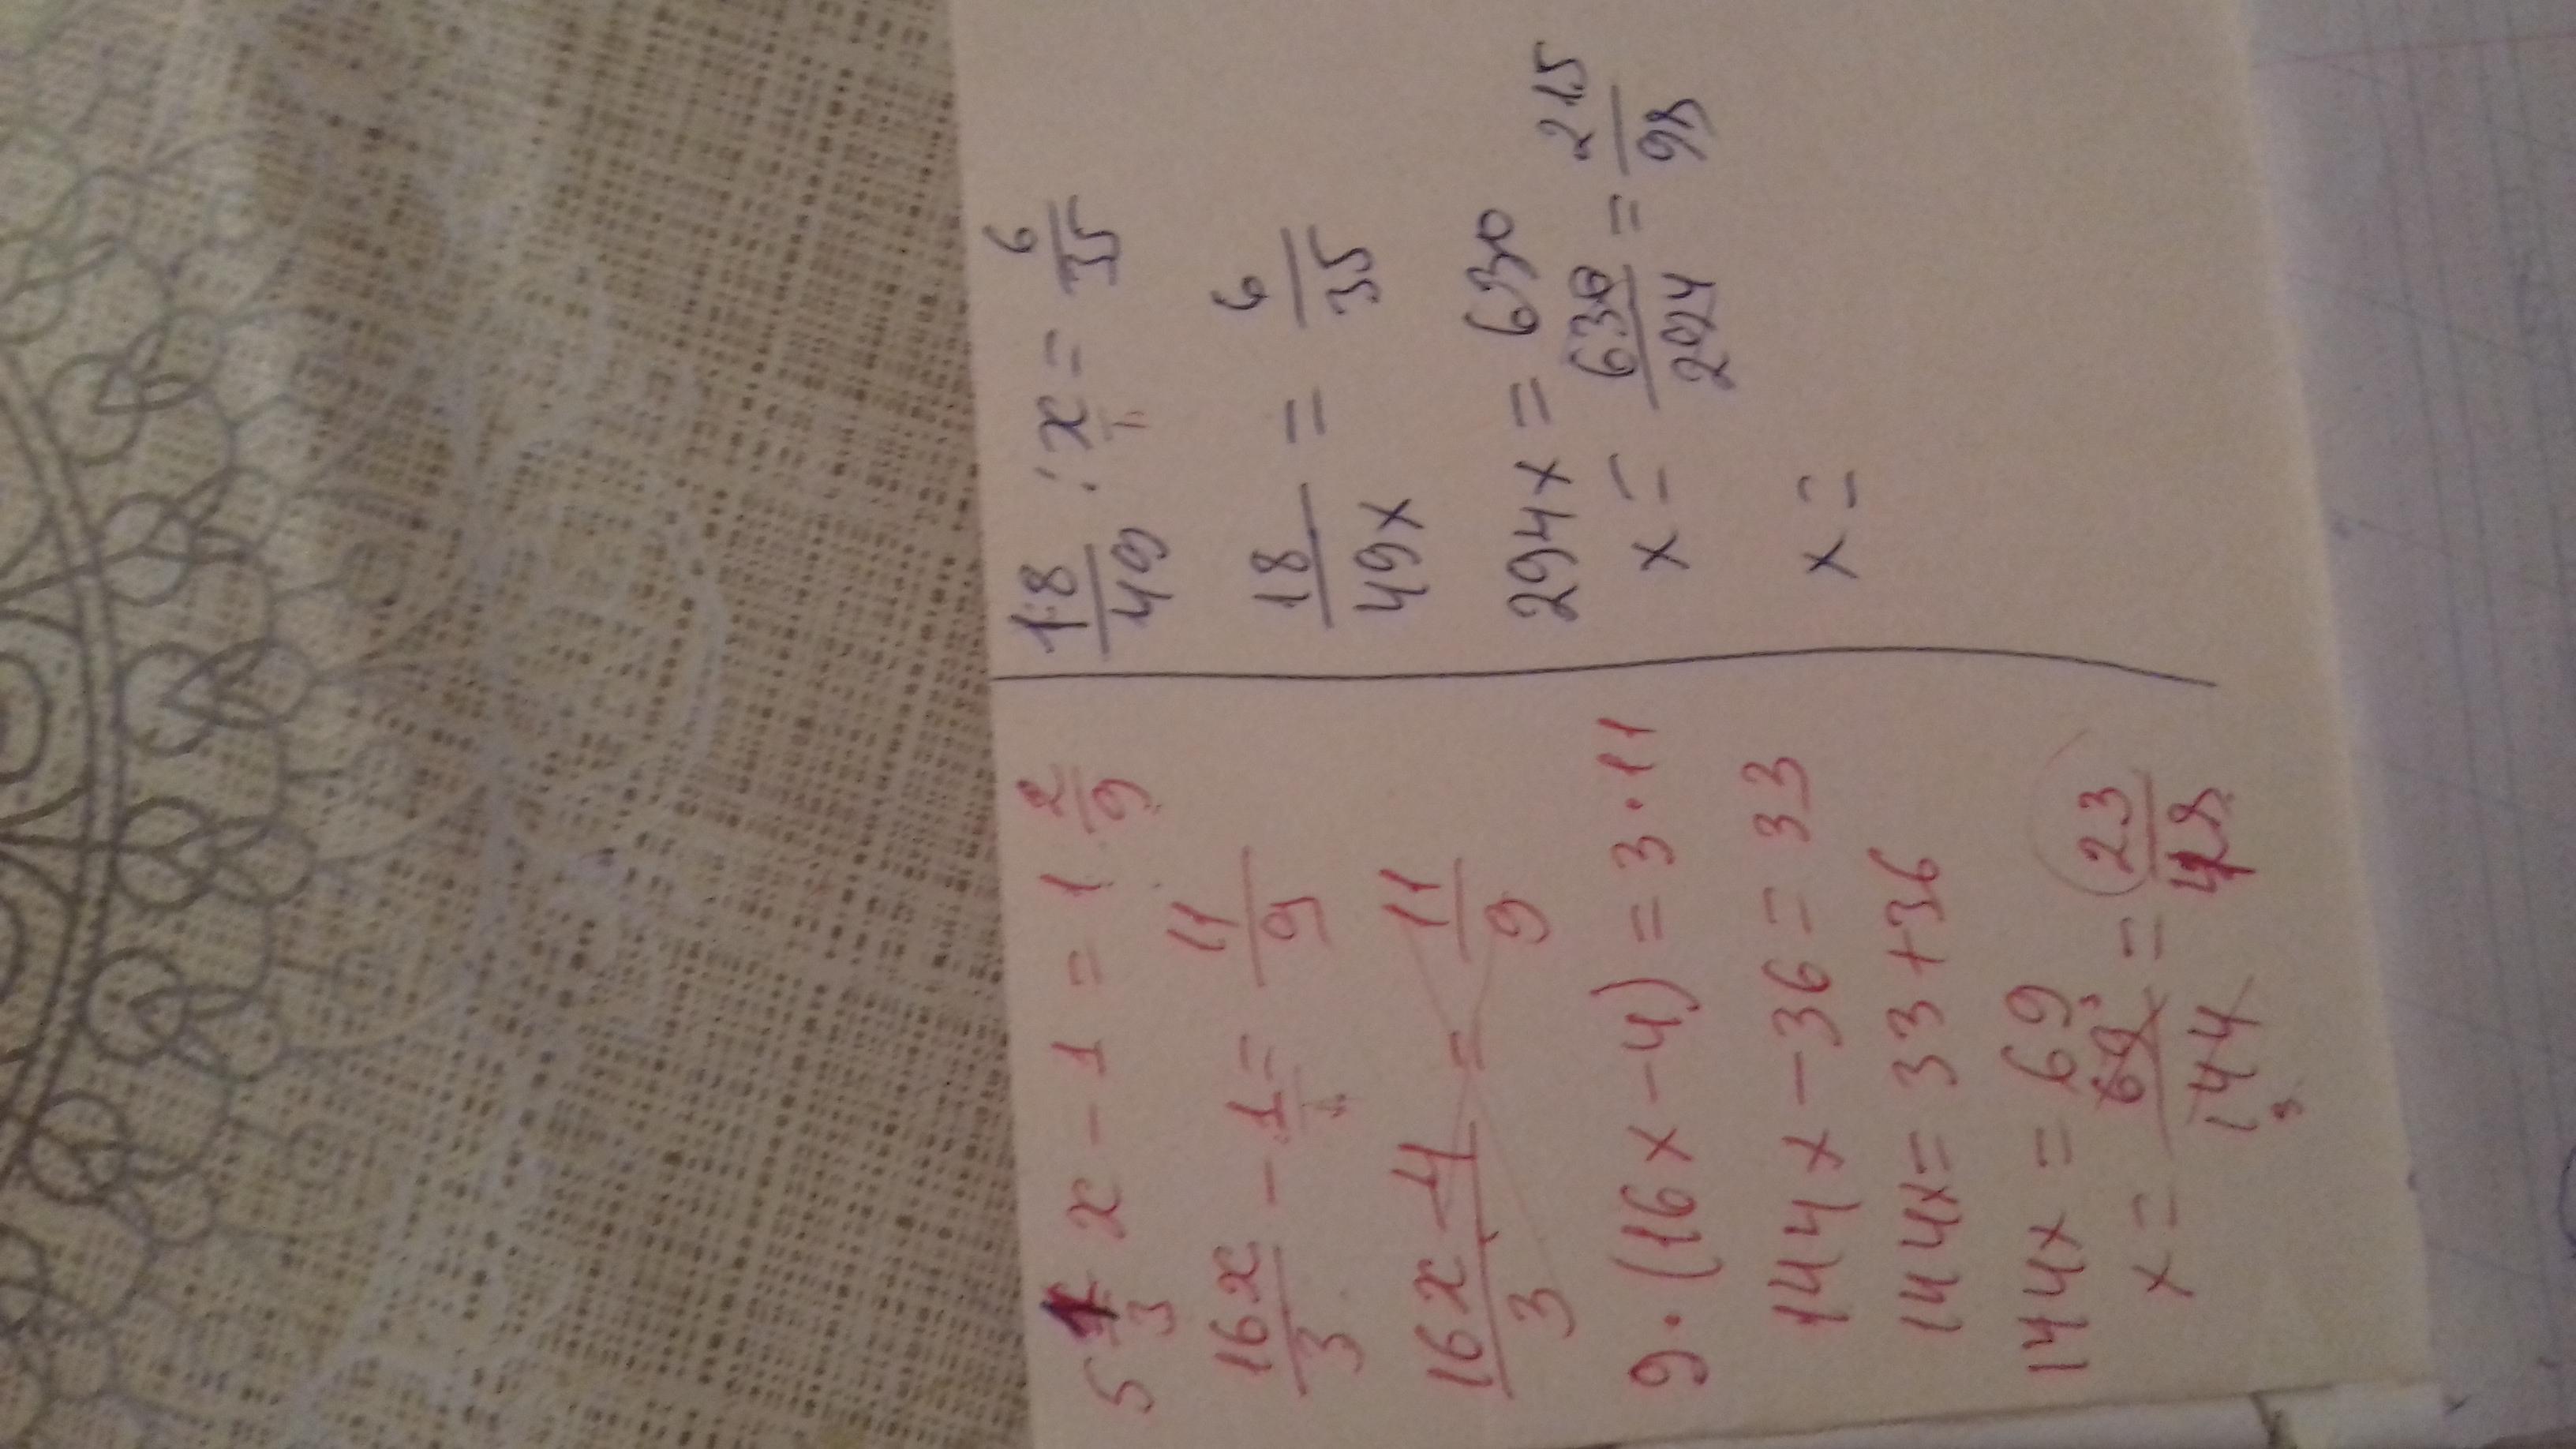 5 1/3 x - 1 = 1 2/9
16x/3 - 1/1 = 11/9
16x-4/3 = 11/9
9·(16x-4) = 3·11
144x-36=33
144x=33+36
144x=69
x= 69/144 = 23/48
18/49 : x/1 = 6/35
18/49x = 6/35
294x=630
x= 630/294 = 215/98
x=